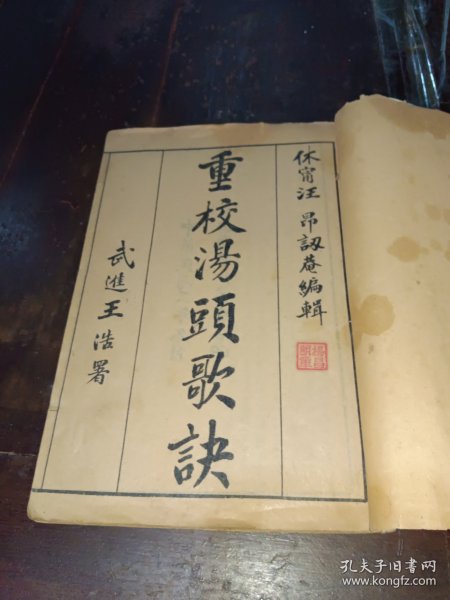 休甯汪昂訒菴編輯
重校湯頭歌訣
武進王浩署
孔夫子旧书网
www.kongfz.com